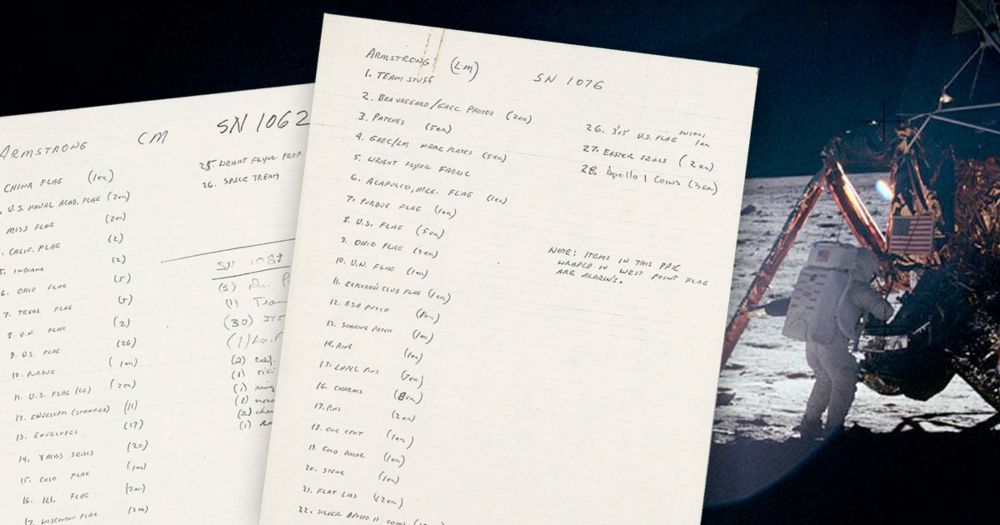 ARMSTRONG CM SN 1062
CHINA FLAG (1ea)
U.S. NAVAL ACAD. FLAG (2ea)
MISS FLAG (2ea)
CALIF. FLAG (2)
5. INDIANA (2)
6. OHIO FLAG (5)
7. TEXAS FLAG (5)
8. U.N. FLAG (2)
9. U.S. FLAG (26)
10. PURDUE (1ea)
11. U.S. FLAG (LG) (2ea)
12. ENVELOPE (STAMPED) (11)
13. ENVELOPES (17)
14. XMAS SEALS (20)
15. COLO FLAG (1ea)
16. ILL. FLAG (2ea)
17. WISCONSIN FLAG (2ea)
25. WRIGHT FLYER PROP.
26. SPACE TREATY
(3)
(1) Team
(30)
(1)
(2)
(1)
(1)
(1)
(2)
(1)
ARMSTRONG (LM) SN 1076
1. TEAM STUFF
2. BEAUREGARD/GAEC PHOTOS (2ea)
3. PATCHES (5ea)
4. GAEC/LM NAME PLATES (5ea)
5. WRIGHT FLYER FABRIC
6. ACAPULCO, MEX. FLAG (1ea)
7. PURDUE FLAG (1ea)
8. U.S. FLAG (5ea)
9. OHIO FLAG (2ea)
10. U.N. FLAG (1ea)
11. EXPLORERS CLUB FLAG (1ea)
12. BSA PATCH (1ea)
13. SOARING PATCH (1ea)
14. RING (1ea)
15. LAPEL PINS (7ea)
16. CHARMS (8ea)
17. PINS (2ea)
18. ONE CENT (1ea)
19. GOLD DOLLAR (1ea)
20. STONE (1ea)
21. FLAT LIDS (12ea)
22. SILVER APOLLO 11 COINS
26. 3'x5' U.S. FLAG 1ea
27. EASTER SEALS (2ea)
28. Apollo 1 Coins (3ea)
NOTE: ITEMS IN THIS PKG
WRAPED IN WEST POINT FLAG
ARE ALDRIN'S.